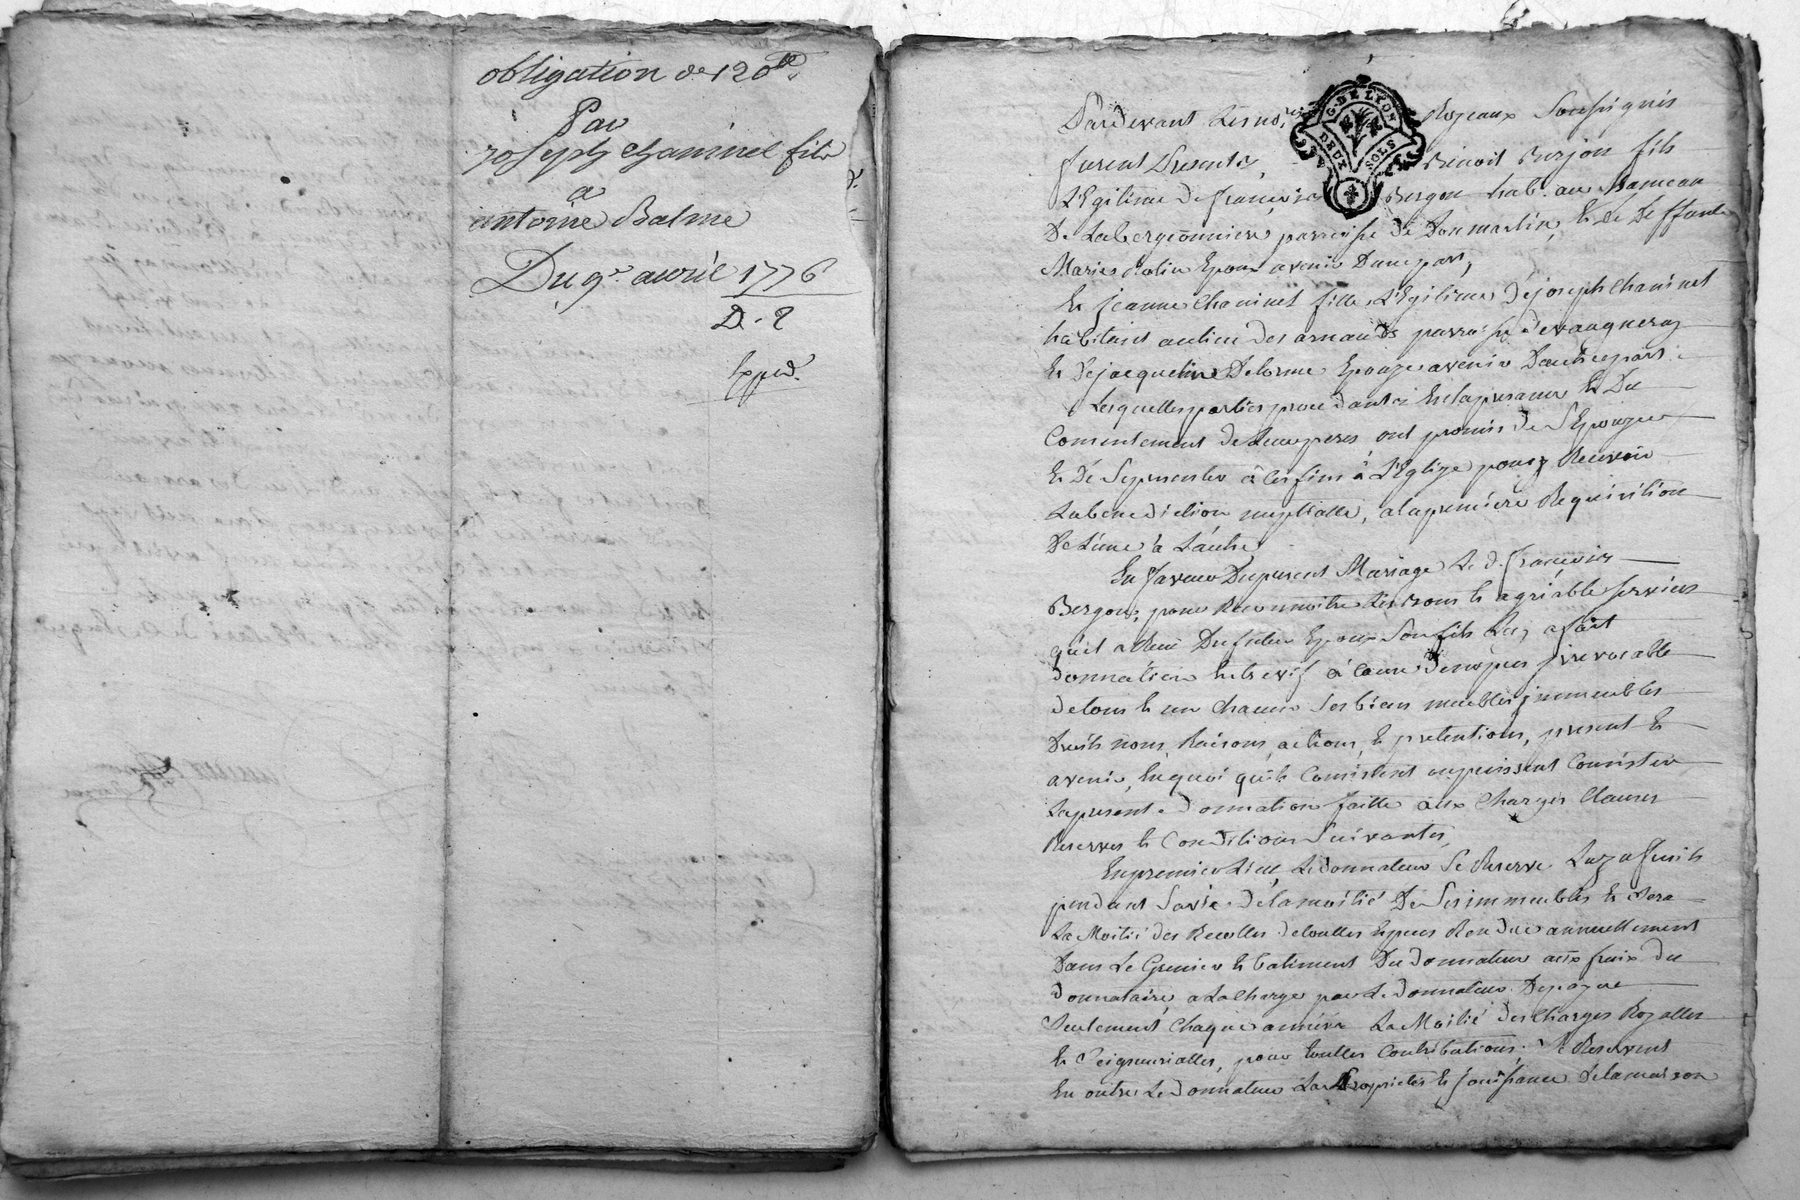 obligation de 120 lt.
Par
Joseph chaminel fils
a
antoine Balme
Du 9e. avril 1776
D. 2
Exped.
G. DE LYON
DEUX SOLS
Pardevant Les no.res Royeaux Soussignés
furent Presents, Benoit Burjon fils
L'Egitime de françois Bergon hab. au hameau
De Labergeonniere parroisse de Donmartin, Et de Deffunte
Maries Rolin Epoux avenir Dunepart,
Et jeanne Chaminet fille L'Egitime de joseph Chaminet
habitant aulieu des arnauds parroisse devaugneray
Et de jacqueline Delorme Epouze avenir Dautrepart.
Lesquelles parties procedantes Enlapresance Et Du
Consentement de Leurs peres, ont promis de S'Epouzer
Et dé Sepresenter à les fins à L'Eglize poury Recevoir
Labenediction nuptialle, alapremiere Requisition
De L'une à Lautre
En faveur Dupresent Mariage Le d. françois
Bergon, pour Reconnoitre Lesbons Et agréable services
qu'il a Reçu Dufutur Epoux Son fils Luy afait
donnation Entrevif à cause denopces jrrevocable
detous Et un chacun Ses biens meubles jmmeubles
Droits noms, Raisons, actions, Et pretentions, present Et
avenir, Enquoi qu'ils Consistent oupuissent Consister
Lapresente donnation faitte aux Charges Clauses
Reserves Et Conditions Suivantes,
Enpremier Lieu, Ledonnateur Se Reserve Luzufruits
pendant Savie delamoitié De Ses immeubles Et sera
La Moitié des Recoltes detouttes Especes Rendue annuellement
Dans Le Grenier Et batiment Du donnateur aux fraix du
donnataire, a Lacharge par Le donnateur Depayer
Seulement Chaque année La Moitié des Charges Royalles
Et Seigneurialles, pour touttes Contributions. Se Reservant
En outre Le donnateur La Proprietés Et Jouissance Delamaison